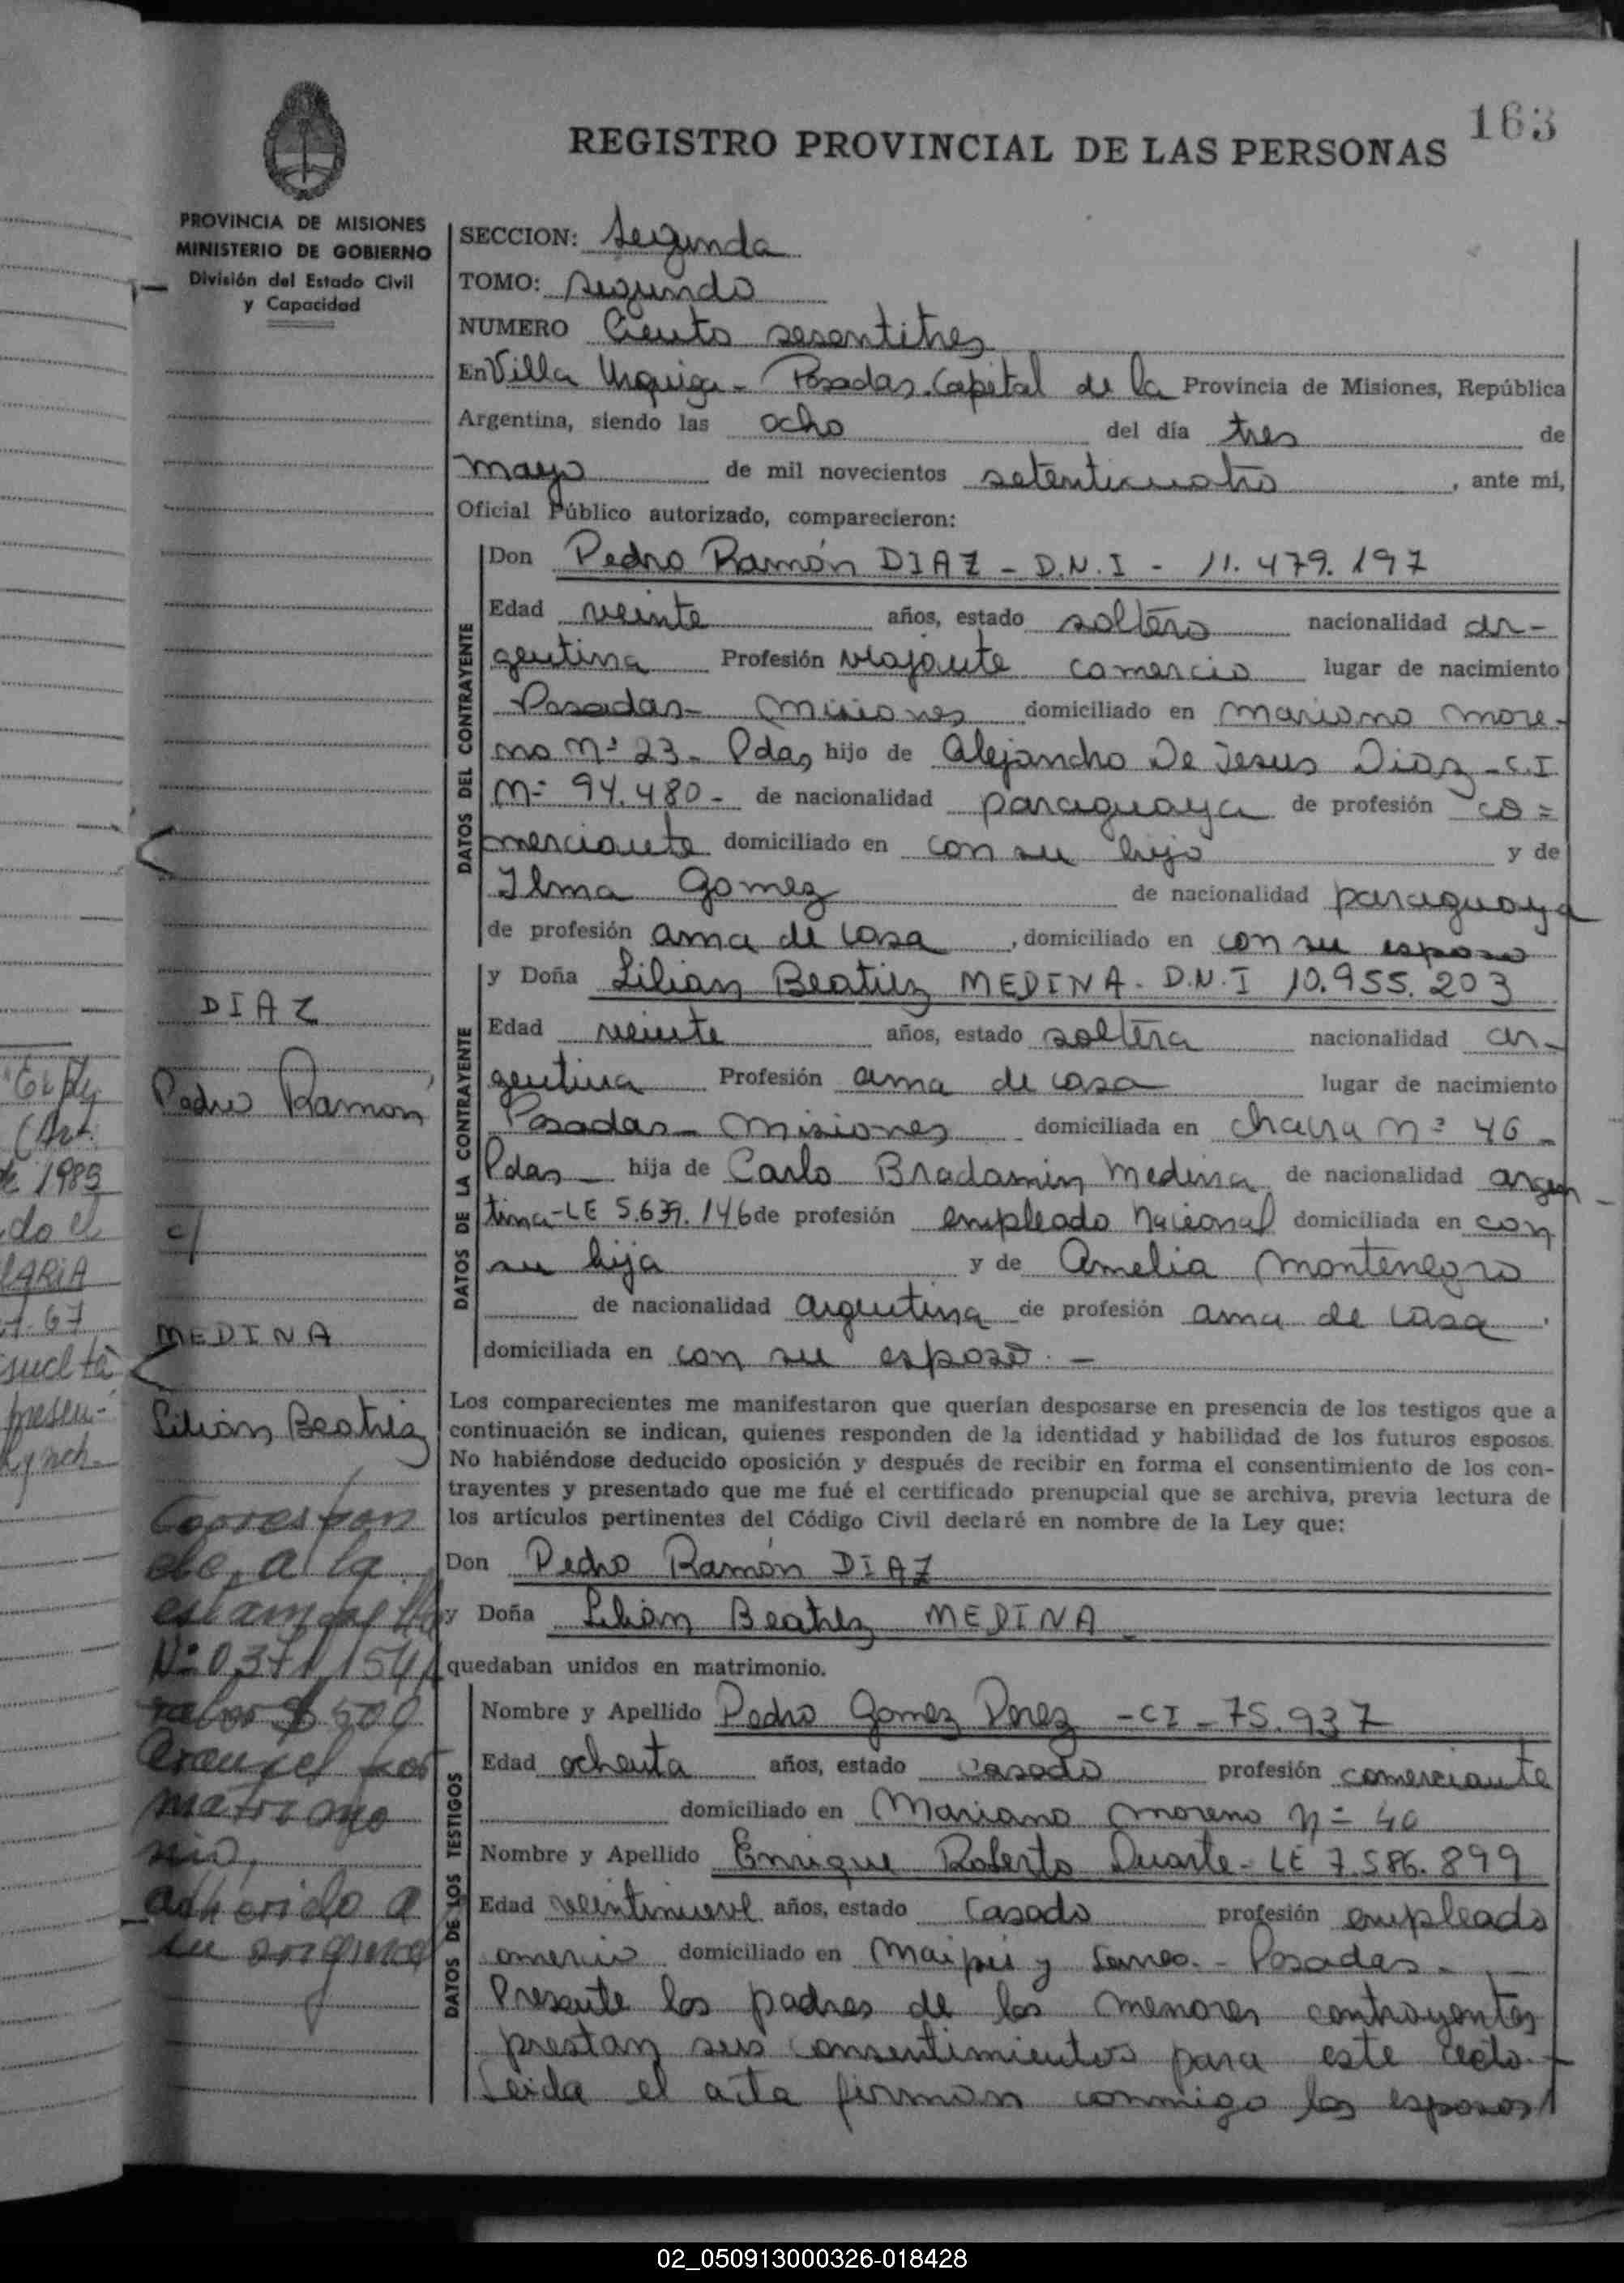 163
REGISTRO PROVINCIAL DE LAS PERSONAS
PROVINCIA DE MISIONES
MINISTERIO DE GOBIERNO
División del Estado Civil
y Capacidad
SECCION: Segunda
TOMO: Segundo
NUMERO Ciento sesentitres
En Villa Urquiza - Posadas. Capital de la Provincia de Misiones, República
Argentina, siendo las ocho del día tres de
mayo de mil novecientos setenticuatro, ante mi,
Oficial Público autorizado, comparecieron:
DATOS DEL CONTRAYENTE
Don Pedro Ramón DIAZ - D.N.I - 11.479.197
Edad veinte años, estado soltero nacionalidad ar-
gentina Profesión viajante comercio lugar de nacimiento
Posadas - Misiones domiciliado en Mariano More-
no Nº 23 - Pdas hijo de Alejandro De Jesus Diaz - C.I
Nº 94.480 - de nacionalidad paraguaya de profesión co=
merciante domiciliado en con su hijo y de
Ilma Gomez de nacionalidad paraguaya
de profesión ama de casa, domiciliado en con su esposo
DATOS DE LA CONTRAYENTE
y Doña Lilian Beatriz MEDINA - D.N.I 10.955.203
Edad veinte años, estado soltera nacionalidad ar-
gentina Profesión ama de casa lugar de nacimiento
Posadas - Misiones domiciliada en chacra Nº 46 -
Pdas - hija de Carlo Bradamin Medina de nacionalidad argen-
tina - LE 5.639.146 de profesión empleado Nacional domiciliada en con
su hija y de Amelia Montenegro
de nacionalidad argentina de profesión ama de casa,
domiciliada en con su esposo. -
Los comparecientes me manifestaron que querían desposarse en presencia de los testigos que a
continuación se indican, quienes responden de la identidad y habilidad de los futuros esposos.
No habiéndose deducido oposición y después de recibir en forma el consentimiento de los con-
trayentes y presentado que me fué el certificado prenupcial que se archiva, previa lectura de
los artículos pertinentes del Código Civil declaré en nombre de la Ley que:
Don Pedro Ramón DIAZ
y Doña Lilian Beatriz MEDINA
quedaban unidos en matrimonio.
DATOS DE LOS TESTIGOS
Nombre y Apellido Pedro Gomez Perez - CI - 75.937
Edad ochenta años, estado casado profesión comerciante
domiciliado en Mariano Moreno Nº 40
Nombre y Apellido Enrique Roberto Duarte - LE 7.586.899
Edad veintinueve años, estado casado profesión empleado
comercio domiciliado en Maipú y - Posadas -
Presente los padres de los menores contrayentes
prestan sus consentimientos para este acto -
Leida el acta firman conmigo los esposos
DIAZ
Pedro Ramón
c/
MEDINA
Lilian Beatriz
Correspon
de a la
estampilla
Nº 0371154
valor $ 500
arancel por
matrimo
nio,
adherido a
su original
(Art.
de 1983
do el
LARIA
7-67
suelta
presen-
Lynch
02_050913000326-018428